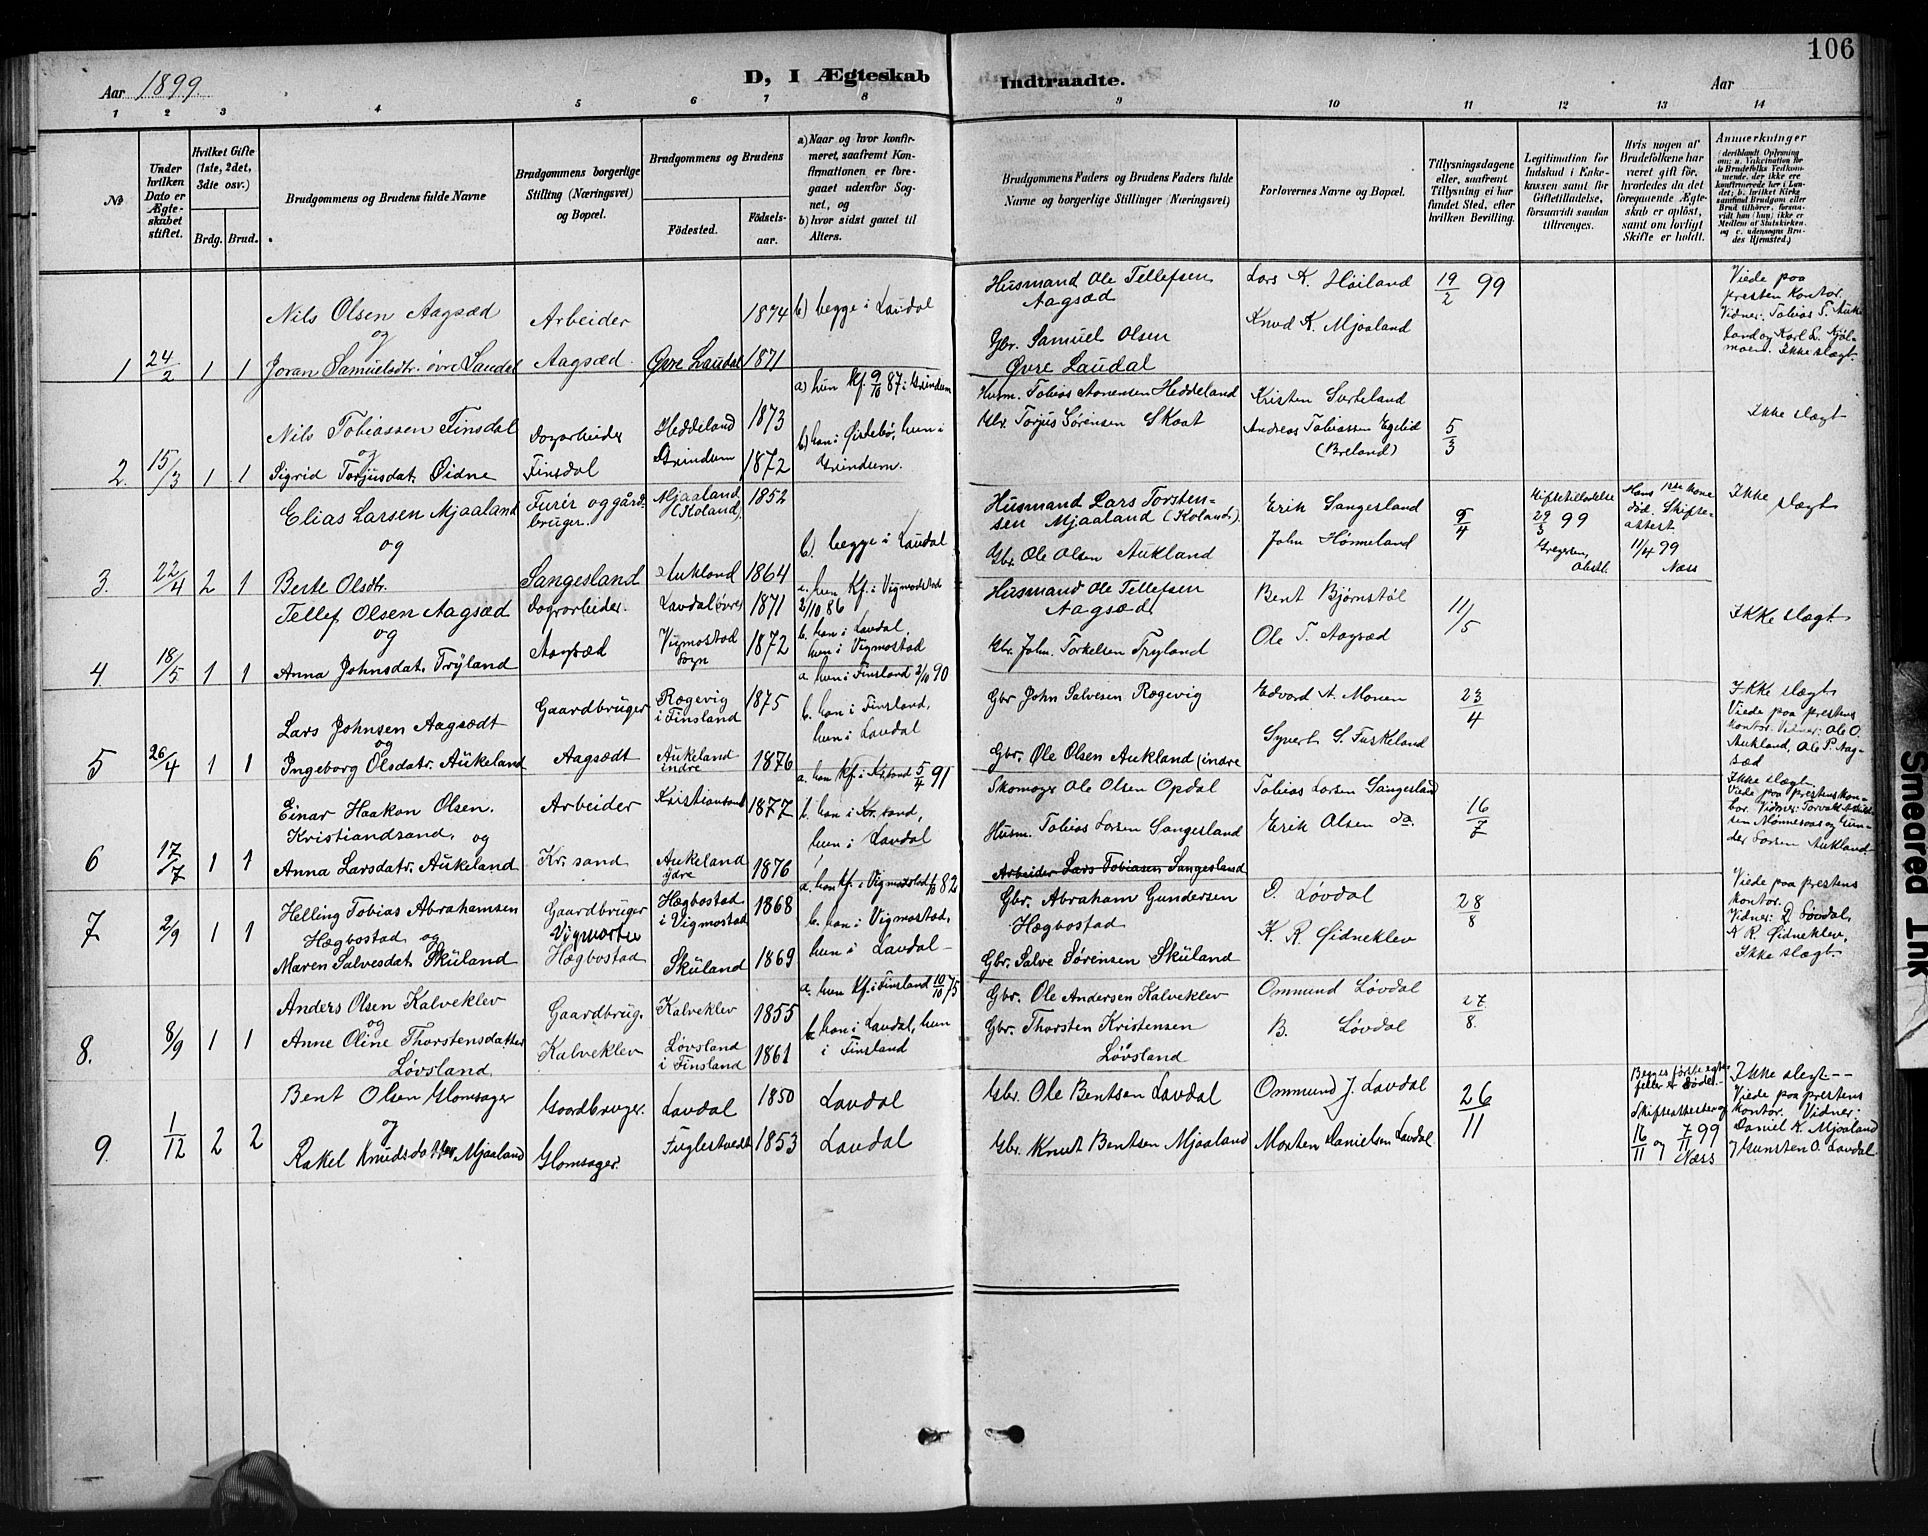 106
Aar 1899.
D, I Ægteskab
Indtraadte.
Aar
1 2 3 4 5 6 7 8 9 10 11 12 13 14
No
Under hvilken Dato er Ægteskabet stiftet.
Hvilket Gifte (1ste, 2det, 3die osv.)
Brdg. Brud.
Brudgommens og Brudens fulde Navne
Brudgommens borgerlige Stilling (Næringsvei) og Bopæl.
Brudgommens og Brudens
Födested.
Födselsaar.
a) Naar og hvor konfirmeret, saafremt Konfirmationen er foregaaet udenfor Sognet, og
b) hvor sidst gaaet til Alters.
Brudgommens Faders og Brudens Faders fulde Navne og borgerlige Stillinger (Næringsvei)
Forlovernes Navne og Bopæl.
Tillysningsdagene eller, saafremt Tillysning ei har fundet Sted, efter hvilken Bevilling.
Legitimation for Indskud i Enkekassen samt for Giftetilladelse, forsaavidt saadan tiltrænges.
Hvis nogen af Brudefolkene har været gift för, hvorledes da det foregaaende Ægteskab er oplöst, samt om lovligt Skifte er holdt.
Anmærkninger (deriblandt Oplysning om: a. Vakcination for de Brudefolks Vedkommende, der ikke ere konfirmerede her i Landet; b. hvilket Kirkesamfund Brudgom eller Brud tilhörer, forsaavidt han (hun) ikke er Medlem af Statskirken, og c. udensogns Brudes Hjemsted.)
1 24/2 1 1
Nils Olsen Aagsæd
og
Joran Samuelsdtr. øvre Laudal
Arbeider
Aagsæd.
Øvre Laudal
1874
1871
b) begge i Laudal
Husmand Ole Tellefsen
Aagsæd
Gbr. Samuel Olsen
Øvre Laudal
Lars K. Høiland
Knud K. Mjaaland
19/2 99
Viede paa
presten Kontor.
Vidner: Tobias T. Aukland og Karl L.
Ikke slægt.
2. 15/3 1 1
Nils Tobiassen Finsdal
og
Sigrid Torjusdat. Øidne
Dagarbeider
Finsdal
Heddeland
Grindum
1873
1872
a) hun kf. 9/10 87 i Grindum
b) han i Øislebø, hun i
Grindum.
Husm. Tobias Aanensen Heddeland
Gbr. Torjus Sørensen Skaat
Kristen Surteland
Andreas Tobiassen Egelid
(Breland)
5/3
Ikke slægt
3. 22/4 2 1
Elias Larsen Mjaaland
og
Berte Olsdtr.
Furér og gårdbruger.
Sangesland
Mjaaland
(Koland)
Aukland
1852
1864
b). begge i Laudal
Husmand Lars Torstensen Mjaaland (Koland).
Gbr. Ole Olsen Aukland
Erik Sangesland
John Hønneland
9/4
Giftetilladelse
29/3 99
Gregersen,
Hans 1ste kone
død. Skifteattest
11/4 99
Næss
Ikke
slægt
4. 18/5 1 1
Tellef Olsen Aagsæd
og
Anna Johnsdat. Tryland
Dagarbeider.
Aagsæd
Laudal øvre
Vigmostad
Sogn
1871
1872
a. hun Kf. i Vigmodstad
2/10 86
b. han i Laudal,
hun i Vigmostad
Husmand Ole Tellefsen
Aagsæd
Gbr. John Torkelsen Tryland
Bent Bjørnstøl
Ole T. Aagsæd
11/5
Ikke slægt
5 26/4 1 1
Lars Johnsen Aagsædt
og
Ingeborg Olsdatr. Aukeland
Gaardbruger
Aagsædt
Røgevig
i Finsland
Aukeland
indre
1875
1876
a. han i Finsland 2/10 90
b. han i Finsland,
hun i Laudal
Gbr John Salvesen Røgevig
Gbr. Ole Olsen Aukland (indre
Edvard A. Monen
Syvert S. Fuskeland
23/4
Ikke slægt
Viede paa prestens
kontor. Vidner: Ole O.
Aukland, Ole P. Aagsæd
6 17/7 1 1
Einar Haakon Olsen.
Kristiandsand, og
Anna Larsdatr. Aukeland
Arbeider
Kr. sand
Kristiansand
Aukeland
ydre
1877
1876
a. han Kf. i Kr. sand 5/4 91
b. han i Kr. sand,
hun i Laudal
Skomager Ole Olsen Opdal
Husm. Tobias Larsen Sangesland
Arbeider Lars Tobiasen Sangesland
Tobias Larsen Sangesland
Erik Olsen do.
16/7
Ikke slægt
Viede paa prestens kontor. Vidner:
7 2/9 1 1
Helling Tobias Abrahamsen
Hægbostad og
Maren Salvesdat. Skuland
Gaardbruger
Hægbostad
Hægbostad
i Vigmostad
Skuland
1868
1869
a. han kf. i Vigmostad 1/10 82
b. han i Vigmostad,
hun i Laudal
Gbr. Abraham Gundersen
Hægbostad
Gbr. Salve Sørensen Skuland
O. Løvdal
K. R. Øidneklev
28/8
Viede paa prestens
kontor.
Vidner: O. Løvdal,
K. R. Øidneklev.
Ikke slægt.
8. 8/9 1 1
Anders Olsen Kalveklev
og
Anne Oline Thorstensdatter
Løvsland
Gaardbrug.
Kalveklev
Kalveklev
Løvsland
i Finsland
1855
1861
a. hun Kf. i Finsland 10/10 75
b. han i Laudal, hun
i Finsland
Gbr. Ole Andersen Kalveklev
Gbr. Thorsten Kristensen
Løvsland
Ommund Løvdal
B. Løvdal
27/8.
9. 1/12 2 2
Bent Olsen Glomsager
og
Rakel Knudsdatter Mjaaland
Gaardbruger.
Glomsager.
Laudal
Fuglestvedt
1850
1853
Laudal
Laudal
Gbr. Ole Bentsen Laudal
Gbr. Knut Bentsen Mjaaland
Ommund J. Laudal
Morten Danielsen Laudal
26/11
Begges første ægtefeller døde.
Skifteattester af
16/11 og 7/11 99
Næss
Ikke slegt--
Viede paa prestens
kontor. Vidner:
Daniel K. Mjaaland
Gunsten O. Laudal.
Smeared Ink